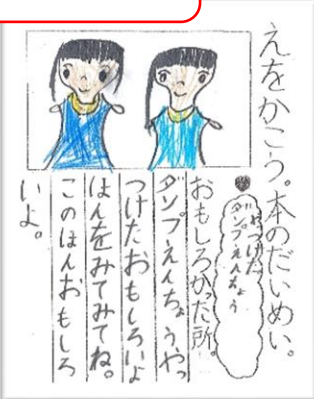 えをかこう。本のだいめい。
やっつけた
ダンプえんちょう
おもしろかった所。
ダンプえんちょうやっ
つけたおもしろいよ
ほんをみてみてね。
このほんおもしろ
いよ。